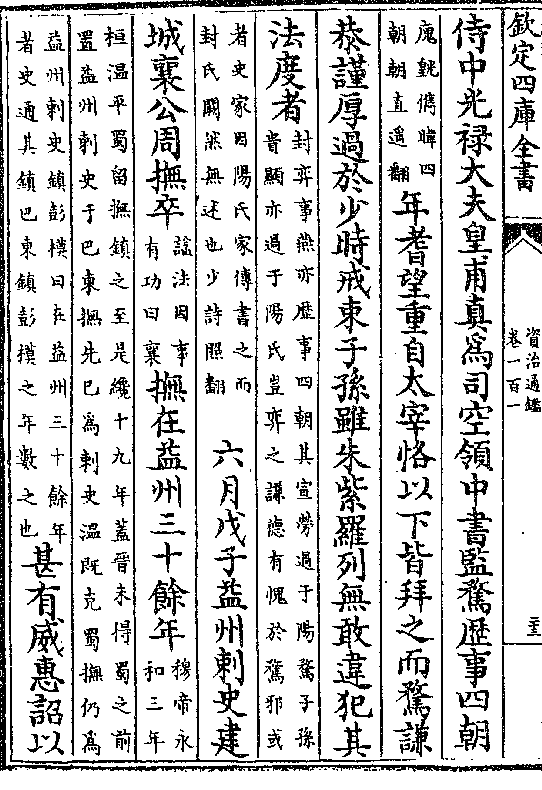 欽定四庫全書
資治通鑑
卷一百一
侍中光禄大夫皇甫真為司空領中書監騖歴事四朝
廆皝儁暐四
朝朝直遥翻
年耆望重自太宰恪以下皆拜之而騖謙
恭謹厚過於少時戒束子孫雖朱紫羅列無敢違犯其
法度者
封弈事燕亦歴事四朝其宣勞過于陽騖子孫
貴顯亦過于陽氏豈弈之謙德有愧於騖邪或
者史家因陽氏家傳書之而
封氏闕然無述也少詩照翻
六月戊子益州刺史建
城襄公周撫卒
諡法因事
有功曰襄
撫在益州三十餘年
穆帝永
和三年
桓温平蜀留撫鎮之至是纔十九年蓋晉未得蜀之前
置益州刺史于巴東撫先已為刺史温既克蜀撫仍為
益州刺史鎮彭模曰在益州三十餘年
者史通其鎮巴東鎮彭模之年數之也
甚有威惠詔以